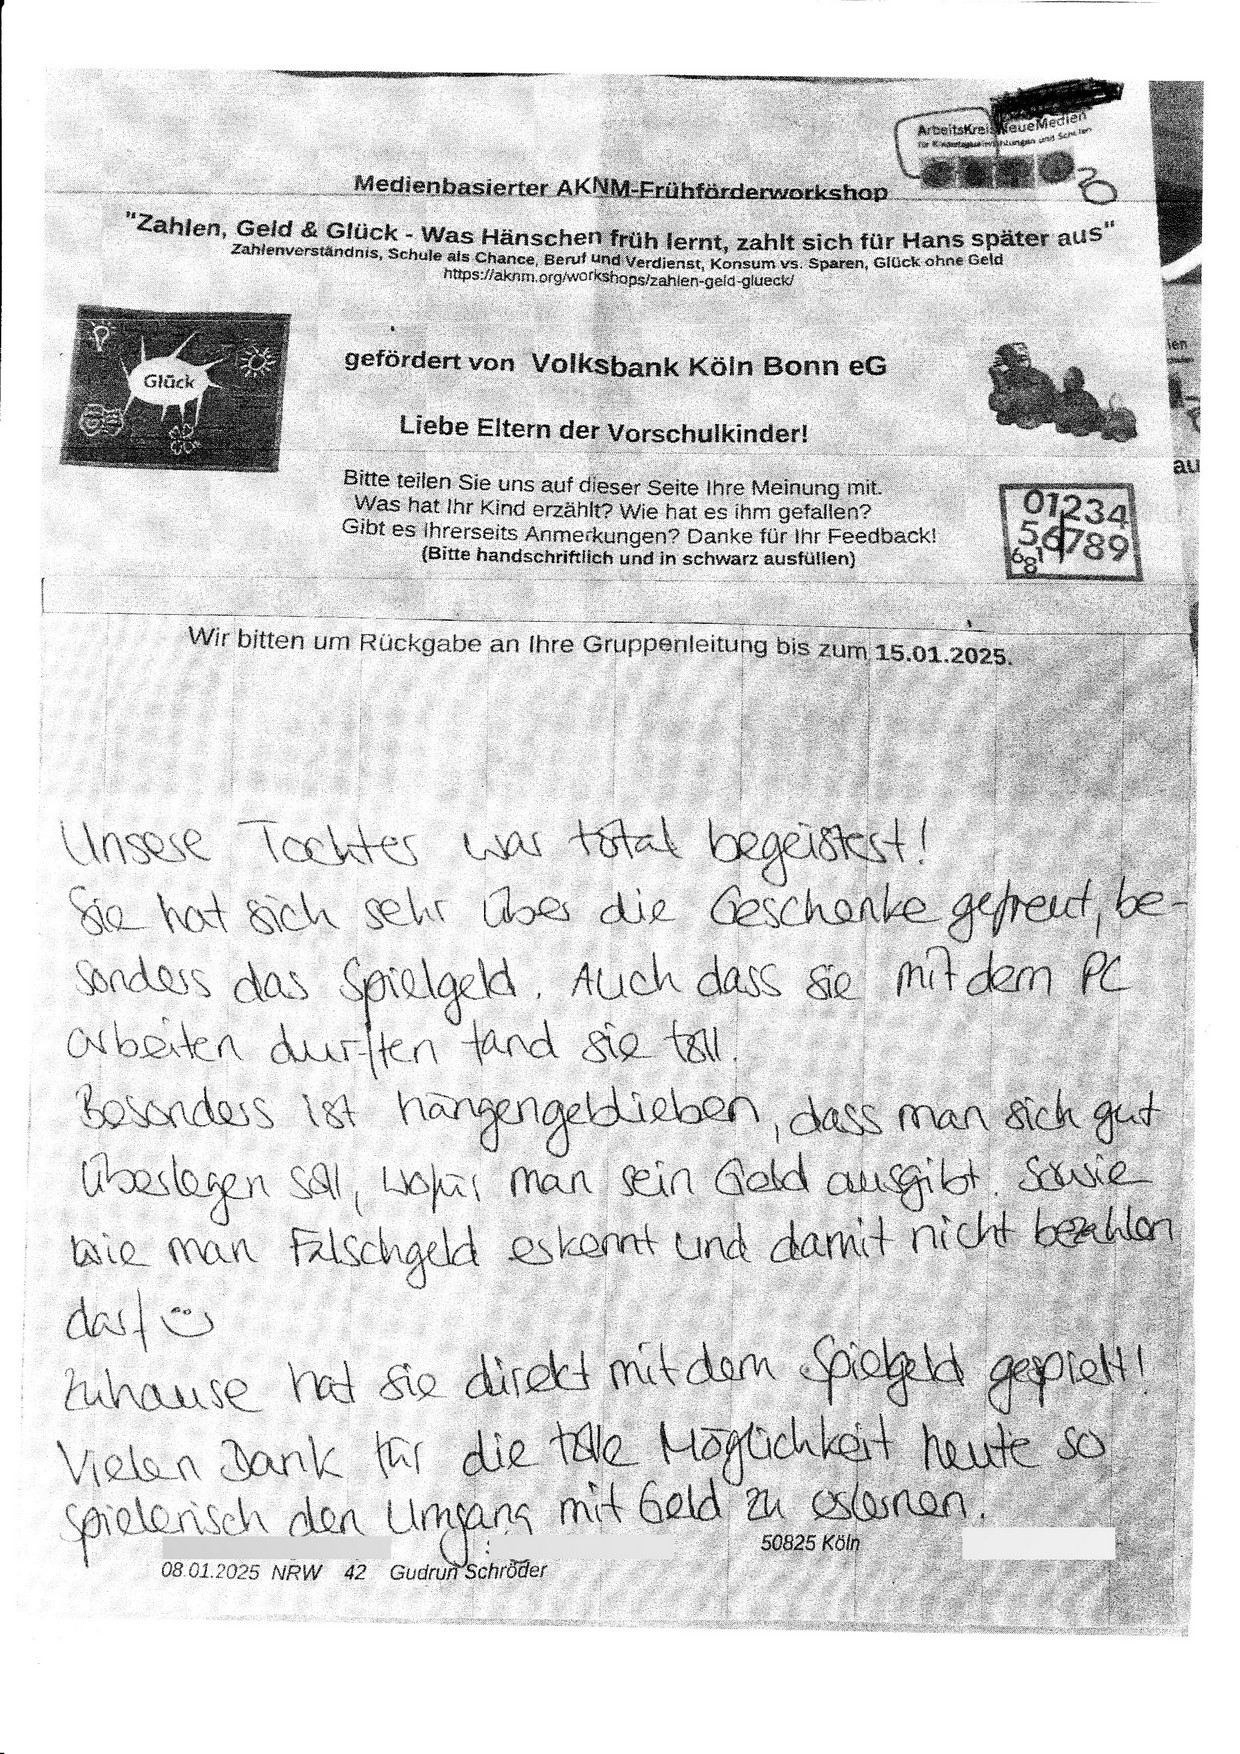 ArbeitsKreis NeueMedien
für Kindertageseinrichtungen und Schulen
20
Medienbasierter AKNM-Frühförderworkshop
"Zahlen, Geld & Glück - Was Hänschen früh lernt, zahlt sich für Hans später aus"
Zahlenverständnis, Schule als Chance, Beruf und Verdienst, Konsum vs. Sparen, Glück ohne Geld
https://aknm.org/workshops/zahlen-geld-glueck/
Glück
gefördert von Volksbank Köln Bonn eG
Liebe Eltern der Vorschulkinder!
Bitte teilen Sie uns auf dieser Seite Ihre Meinung mit.
Was hat Ihr Kind erzählt? Wie hat es ihm gefallen?
Gibt es Ihrerseits Anmerkungen? Danke für Ihr Feedback!
(Bitte handschriftlich und in schwarz ausfüllen)
01234
56789
681
au
Wir bitten um Rückgabe an Ihre Gruppenleitung bis zum 15.01.2025.
Unsere Tochter war total begeistert!
Sie hat sich sehr über die Geschenke gefreut, be-
sonders das Spielgeld. Auch dass sie mit dem PC
arbeiten durften fand sie toll.
Besonders ist hängengeblieben, dass man sich gut
überlegen soll, wofür man sein Geld ausgibt. Sowie
wie man Falschgeld erkennt und damit nicht bezahlen
darf
Zuhause hat sie direkt mit dem Spielgeld gespielt!
Vielen Dank für die tolle Möglichkeit heute so
spielerisch den Umgang mit Geld zu erlernen.
50825 Köln
08.01.2025 NRW 42 Gudrun Schröder